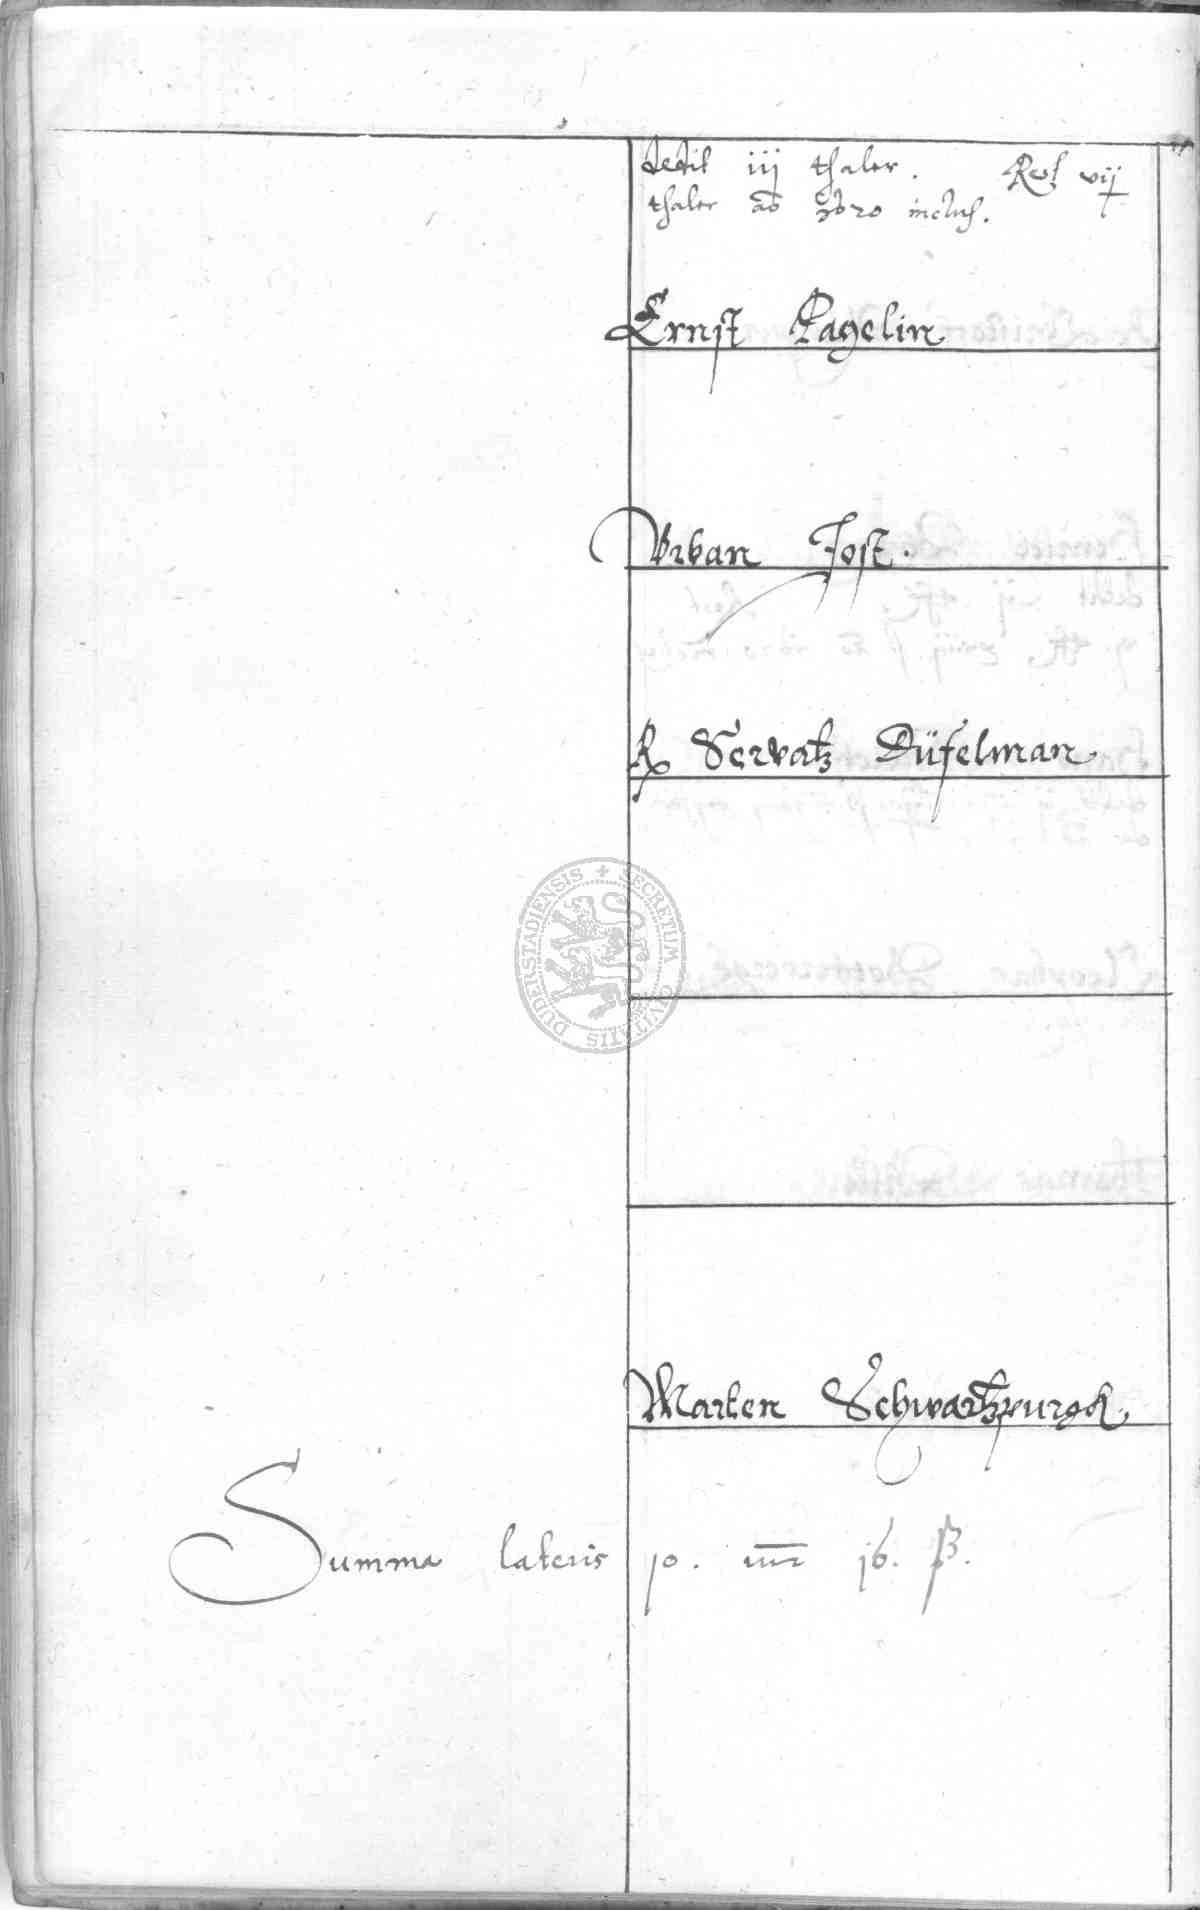 dedit iij thaler. Rest vij
thaler ao 1620 inclus.
Ernst Pagelin
Vrban Jost.
R Servatz Düfelman
SECRETUM CIVITATIS DUDERSTADIENSIS
Marten Schwartzpurgk.
Summa lateris 10. mr 16. ß.